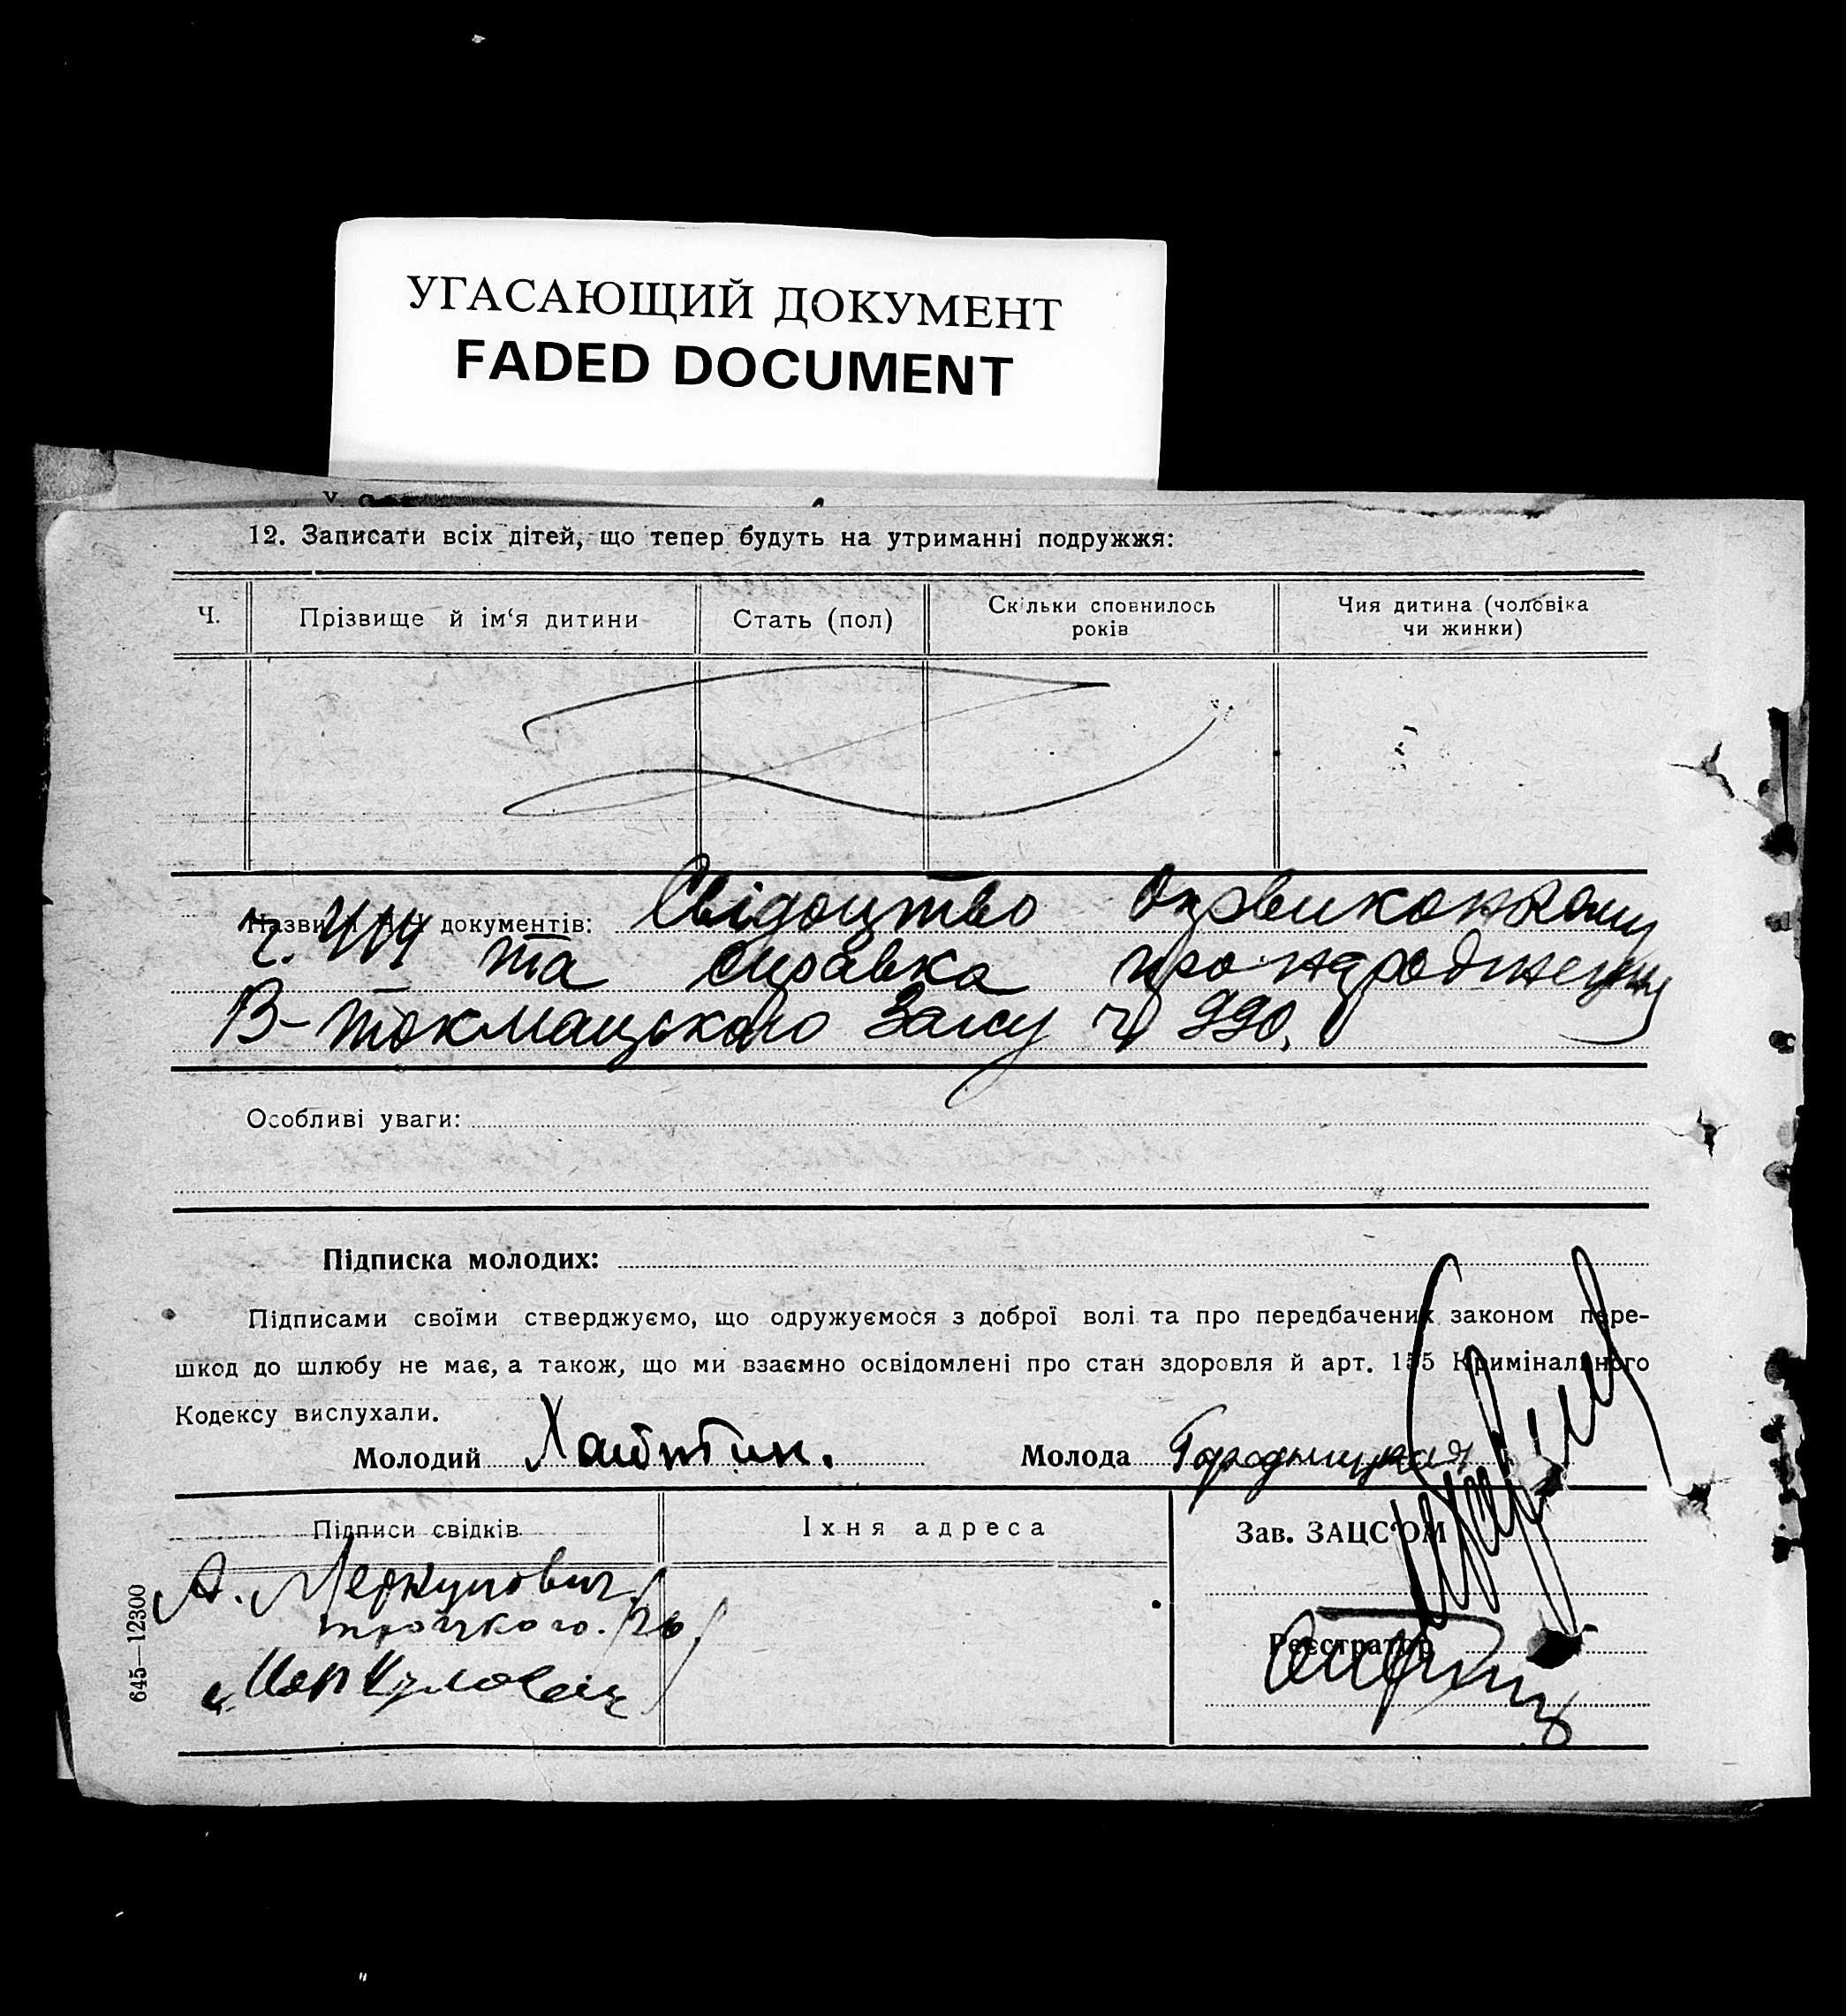 УГАСАЮЩИЙ ДОКУМЕНТ
FADED DOCUMENT
12. Записати всіх дітей, що тепер будуть на утриманні подружжя:
Ч.
Прізвище й ім‘я дитини
Стать (пол)
Скільки сповнилось
років
Чия дитина (чоловіка
чи жинки)
Назви документів: Свідоцтво Окрвиконкому
ч. 414 та справка про народження
В-Токмацького Загсу ч 990.
Особливі уваги:
Підписка молодих:
Підписами своїми стверджуємо, що одружуємося з доброї волі та про передбачених законом пере-
шкод до шлюбу не має, а також, що ми взаємно освідомлені про стан здоровля й арт. 155 Кримінального
Кодексу вислухали.
Молодий Хайтин.
Молода Городницкая
Підписи свідків
Їхня адреса
Зав. ЗАЦС‘ОМ
А. Меркулович
троцкого. 26
Меркулович
Реєстратор
645—12300